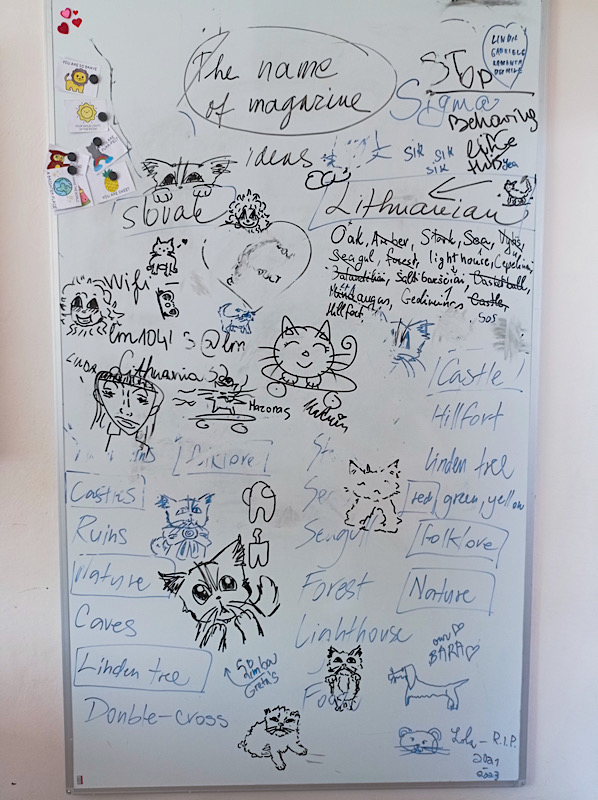 The name
of magazine
STOP
Sigma
Behaving
like
this
LINDA
GABRIELĖ
YOU ARE SWEET
ideas
SIK SIK
SIK
Slovak
Lithuanian
Oak, Amber, Stork, Sea, Vytis,
Seagul, forest, lighthouse, Cepelinai
Šaltibarščiai, Basketball,
Mindaugas, Gediminas, Castle,
Hillfort
SOS
Wifi
lm1041 s@lm
Lithuania
Mazonas
Castle
Hillfort
Linden tree
red, green, yellow
Folklore
Nature
folklore
Castles
Ruins
Nature
Caves
Linden tree
Double-cross
Seagull
Forest
Lighthouse
Greta's
own
BARA
Lola - R.I.P.
2021
2023